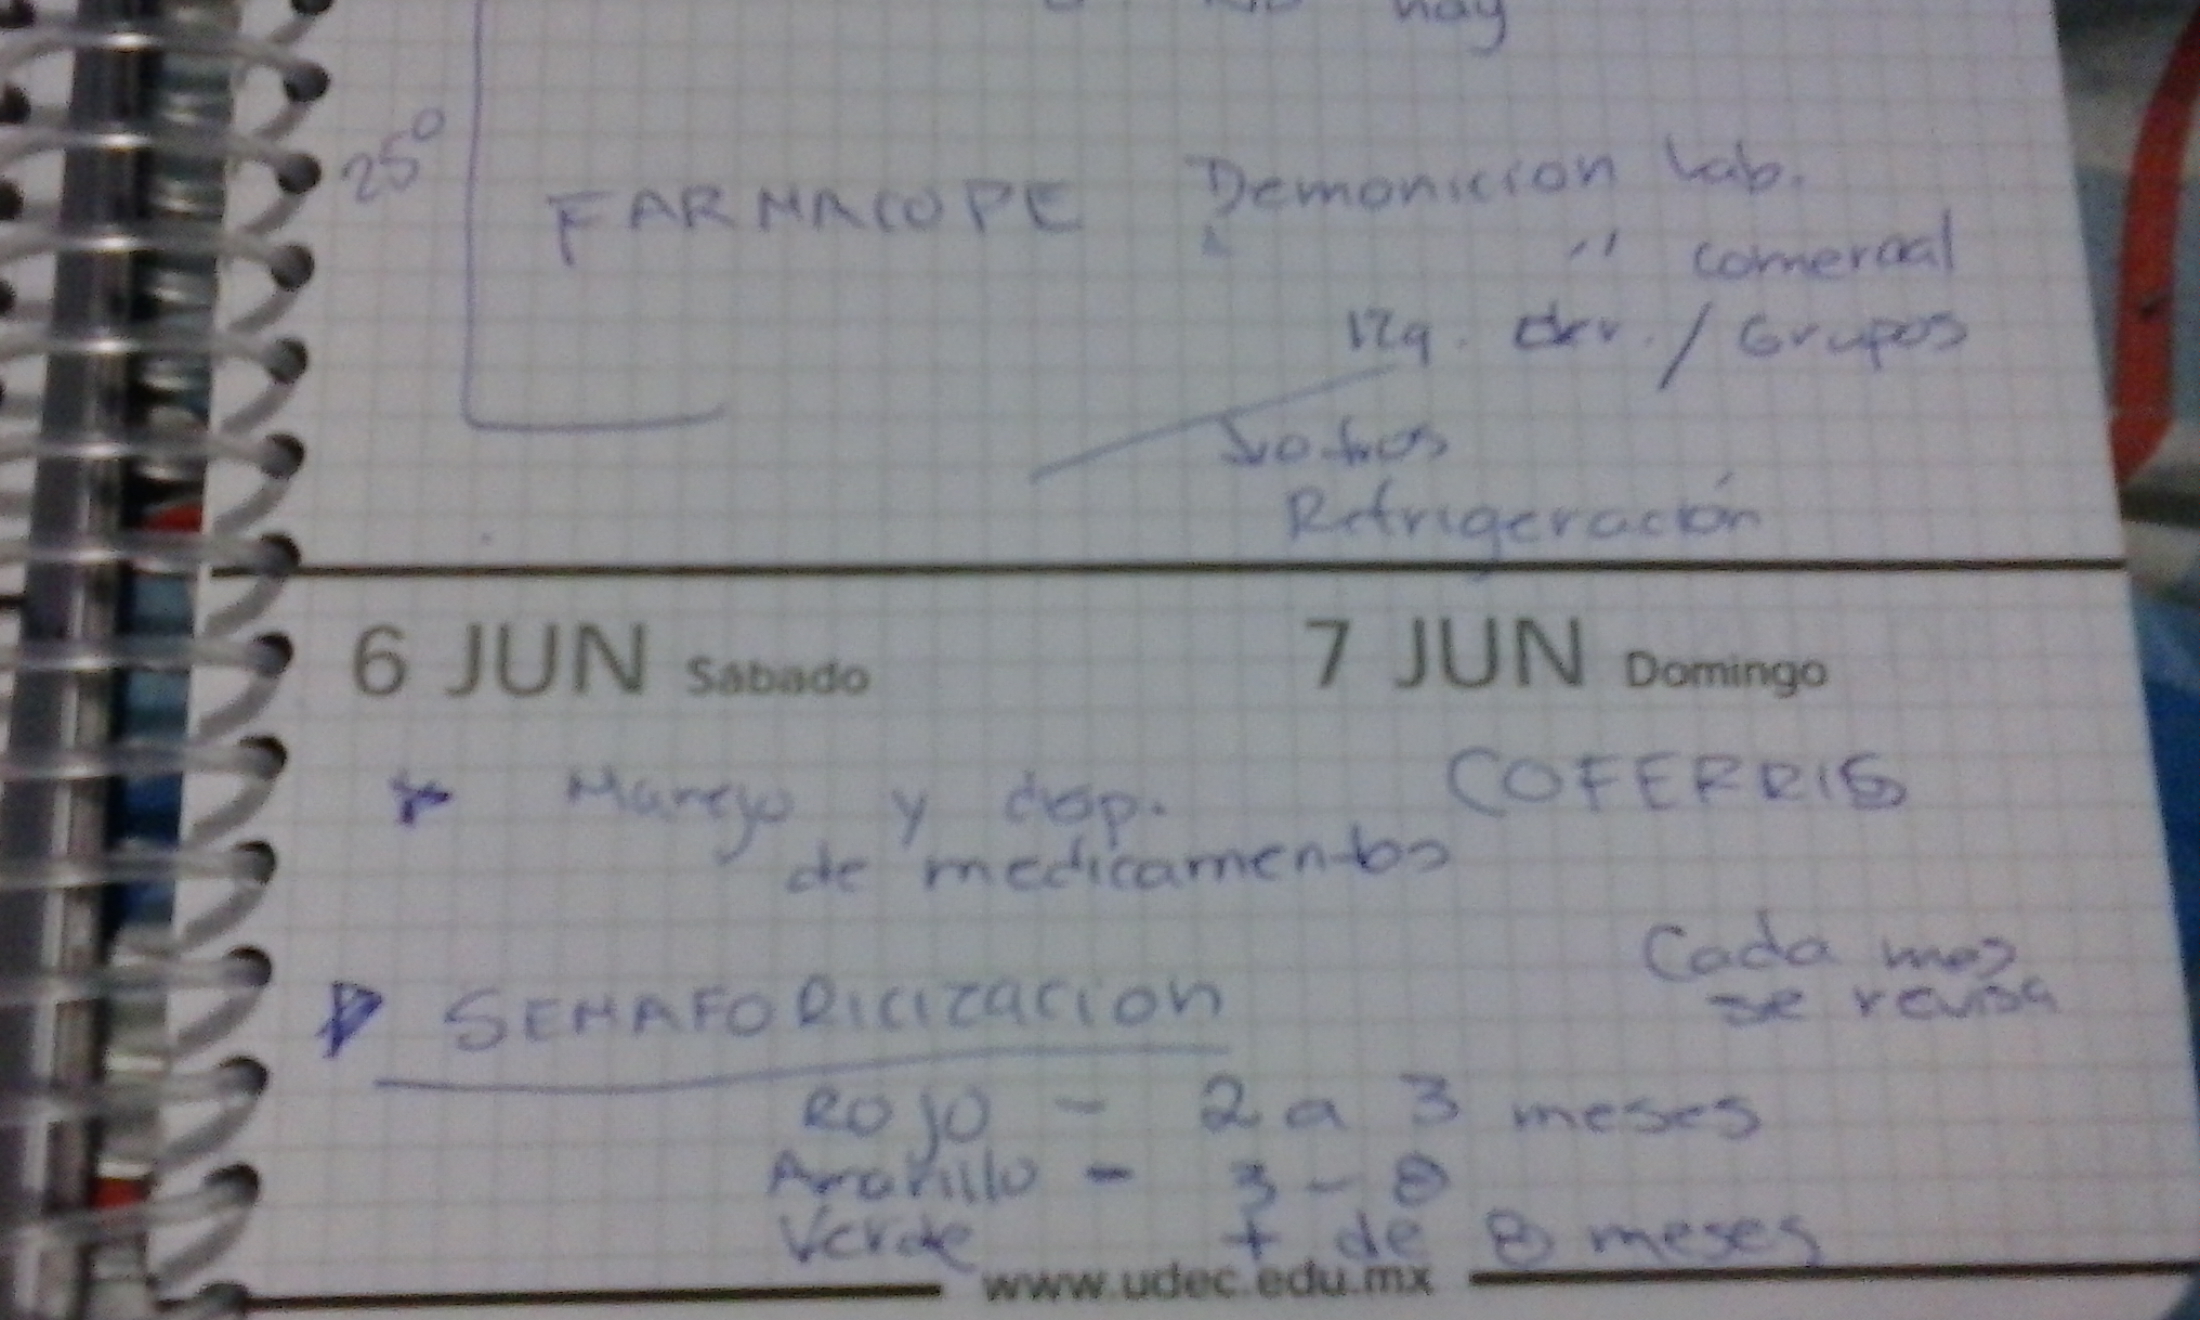 hay
25°
FARMACOPE Demonicion Lab.
" comercial
Izq. der. / Grupos
Refrigeración
6 JUN Sábado 7 JUN Domingo
Manejo y disp. COFERRIS
de medicamentos
Cada mes
se revisa
SEMAFORICIZACION
ROJO - 2 a 3 meses
Amarillo - 3 - 8
Verde + de 8 meses
www.udec.edu.mx